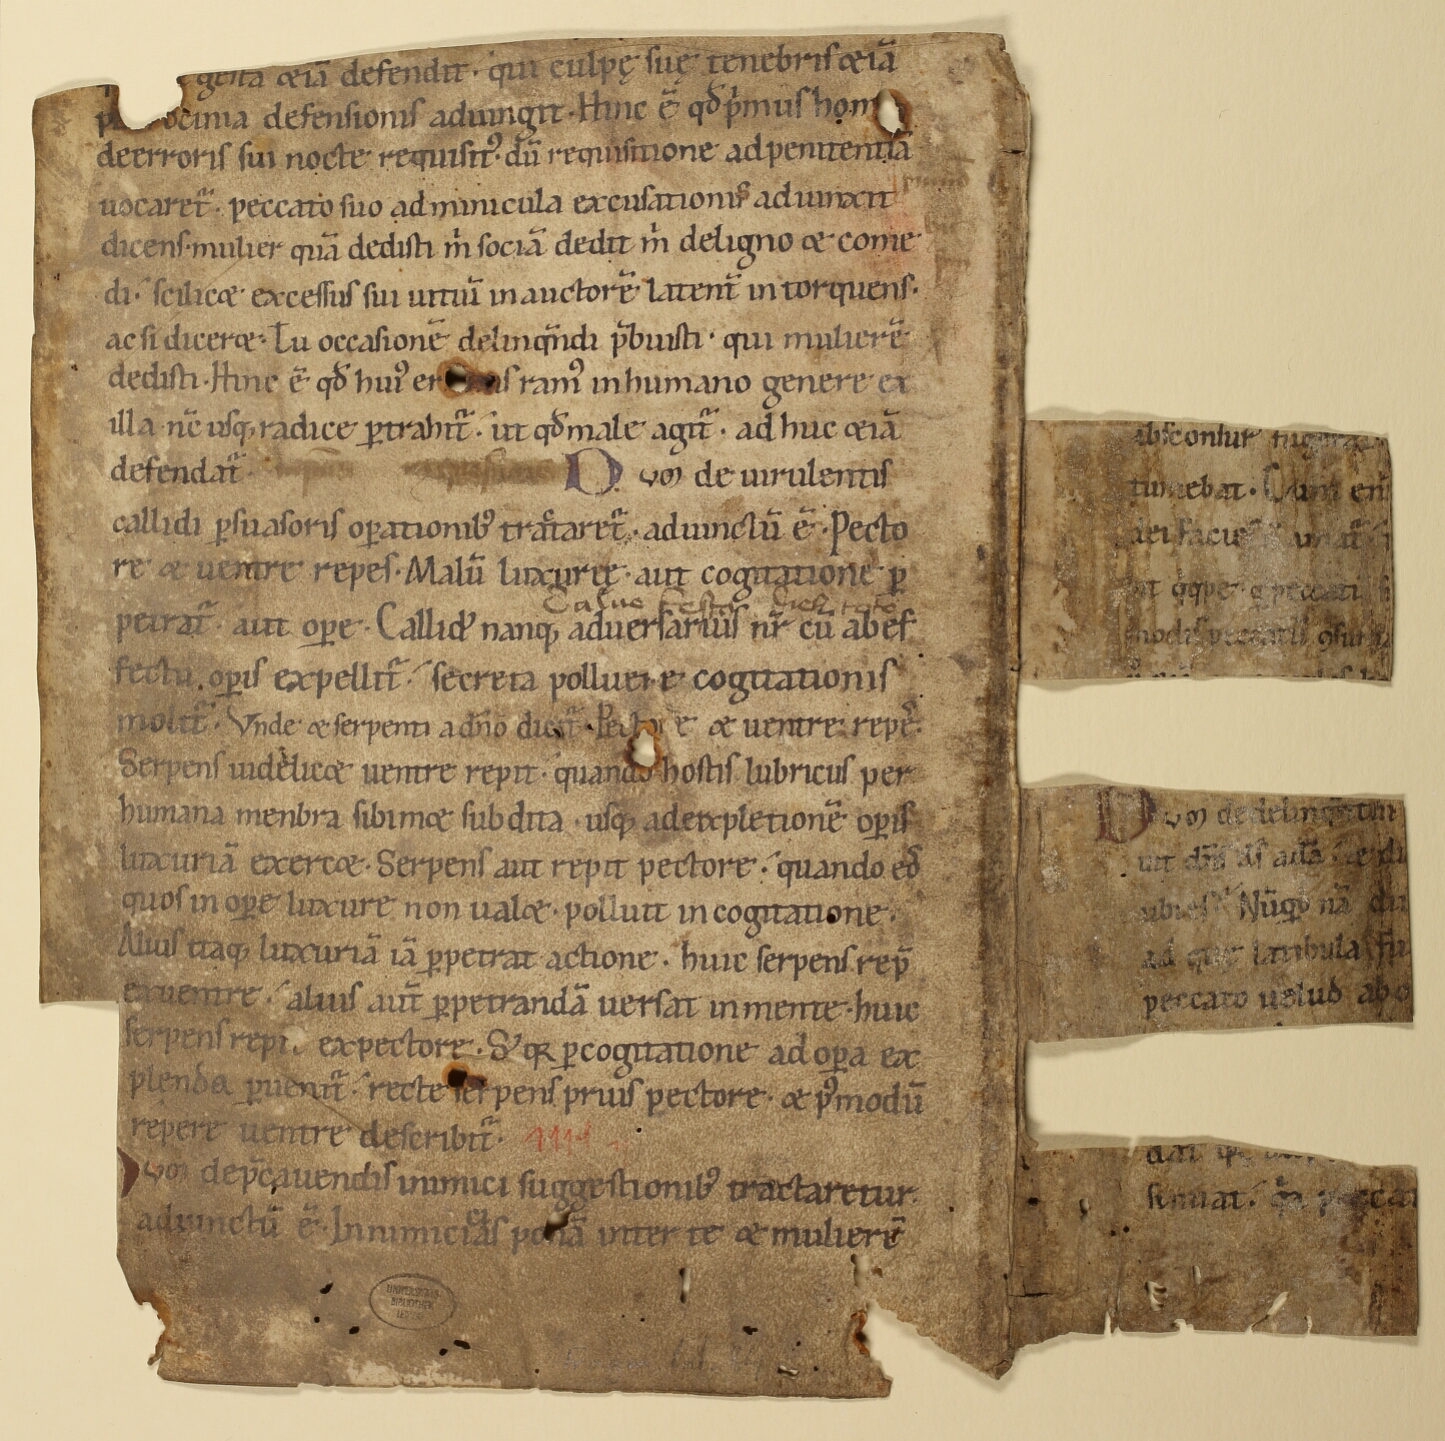 gesta &iā defendit · qui culpę suę tenebris &iā
defensionis adiungit · Hinc ē qđ p̄mus hom
de erroris sui nocte requisit᷒ · dū requisitione ad penitentiā
uocaret᷑ · peccato suo adminicula excusationis adiunxit
dicens · mulier quā dedisti m̄ sociā dedit m̄ de ligno & come
di · scilic& excessus sui uitiū in auctorē latent᷑ intorquens ·
ac si dicer& · Tu occasionē delinq̄ndi p̄buisti · qui mulierē
dedisti · Hinc ē qđ hui᷒ er is ram᷒ in humano genere ex
illa n̄c usq; radice ꝑtrahit᷑ · ut qđ male agit᷑ · ad huc &iā
defendat᷑ Dum de uirulentis
callidi ꝑsuasoris oꝑationib᷒ tractaret᷑ · adiunctū ē · Pecto
re & uentre repes · Malū luxurię · aut cogitatione ꝑ
petrat᷑ · aut oꝑe · Callid᷒ nanq; aduersarius nr̄ cū ab ef
fectu oꝑis expellit᷑ · secreta polluere cogitationis
molit᷑ · Vnde & serpenti a dn̄o dicit᷑ · Pectore & uentre repē ·
Serpens uidelic& uentre repit · quando hostis lubricus per
humana menbra sibim& subdita · usq; ad expletionē oꝑis
luxuriā exerc& · Serpens aut̄ repit pectore · quando eos
quos in oꝑe luxurię non ual& · polluit in cogitatione ·
Alius itaq; luxuriā iā ꝑpetrat actione · huic serpens rep̄
ex uentre · alius aut̄ ꝑpetrandā uersat in mente · huic
serpens repit ex pectore · S; qꝛ ꝑ cogitatione ad oꝑa ex
plenda ꝑuenit᷑ · recte serpens prius pectore · & p᷒modū
repere uentre describit᷑ ·
uom de p̄cauendis inimici suggestionib᷒ tractaretur ·
adiunctū ē · Inimicicias ponā inter te & mulierē
UNIVERSITÄTS-
BIBLIOTHEK
LEIPZIG
tumebat · Cum eni
dei facie
ut qͥppe
modis peccati
Dum de delinq̄ntiu
uit dn̄s d̄s adā
ubi es · Nūq; nā
ad que latibula
peccato uelud ab o
dat
sinuat · q̄a peccat